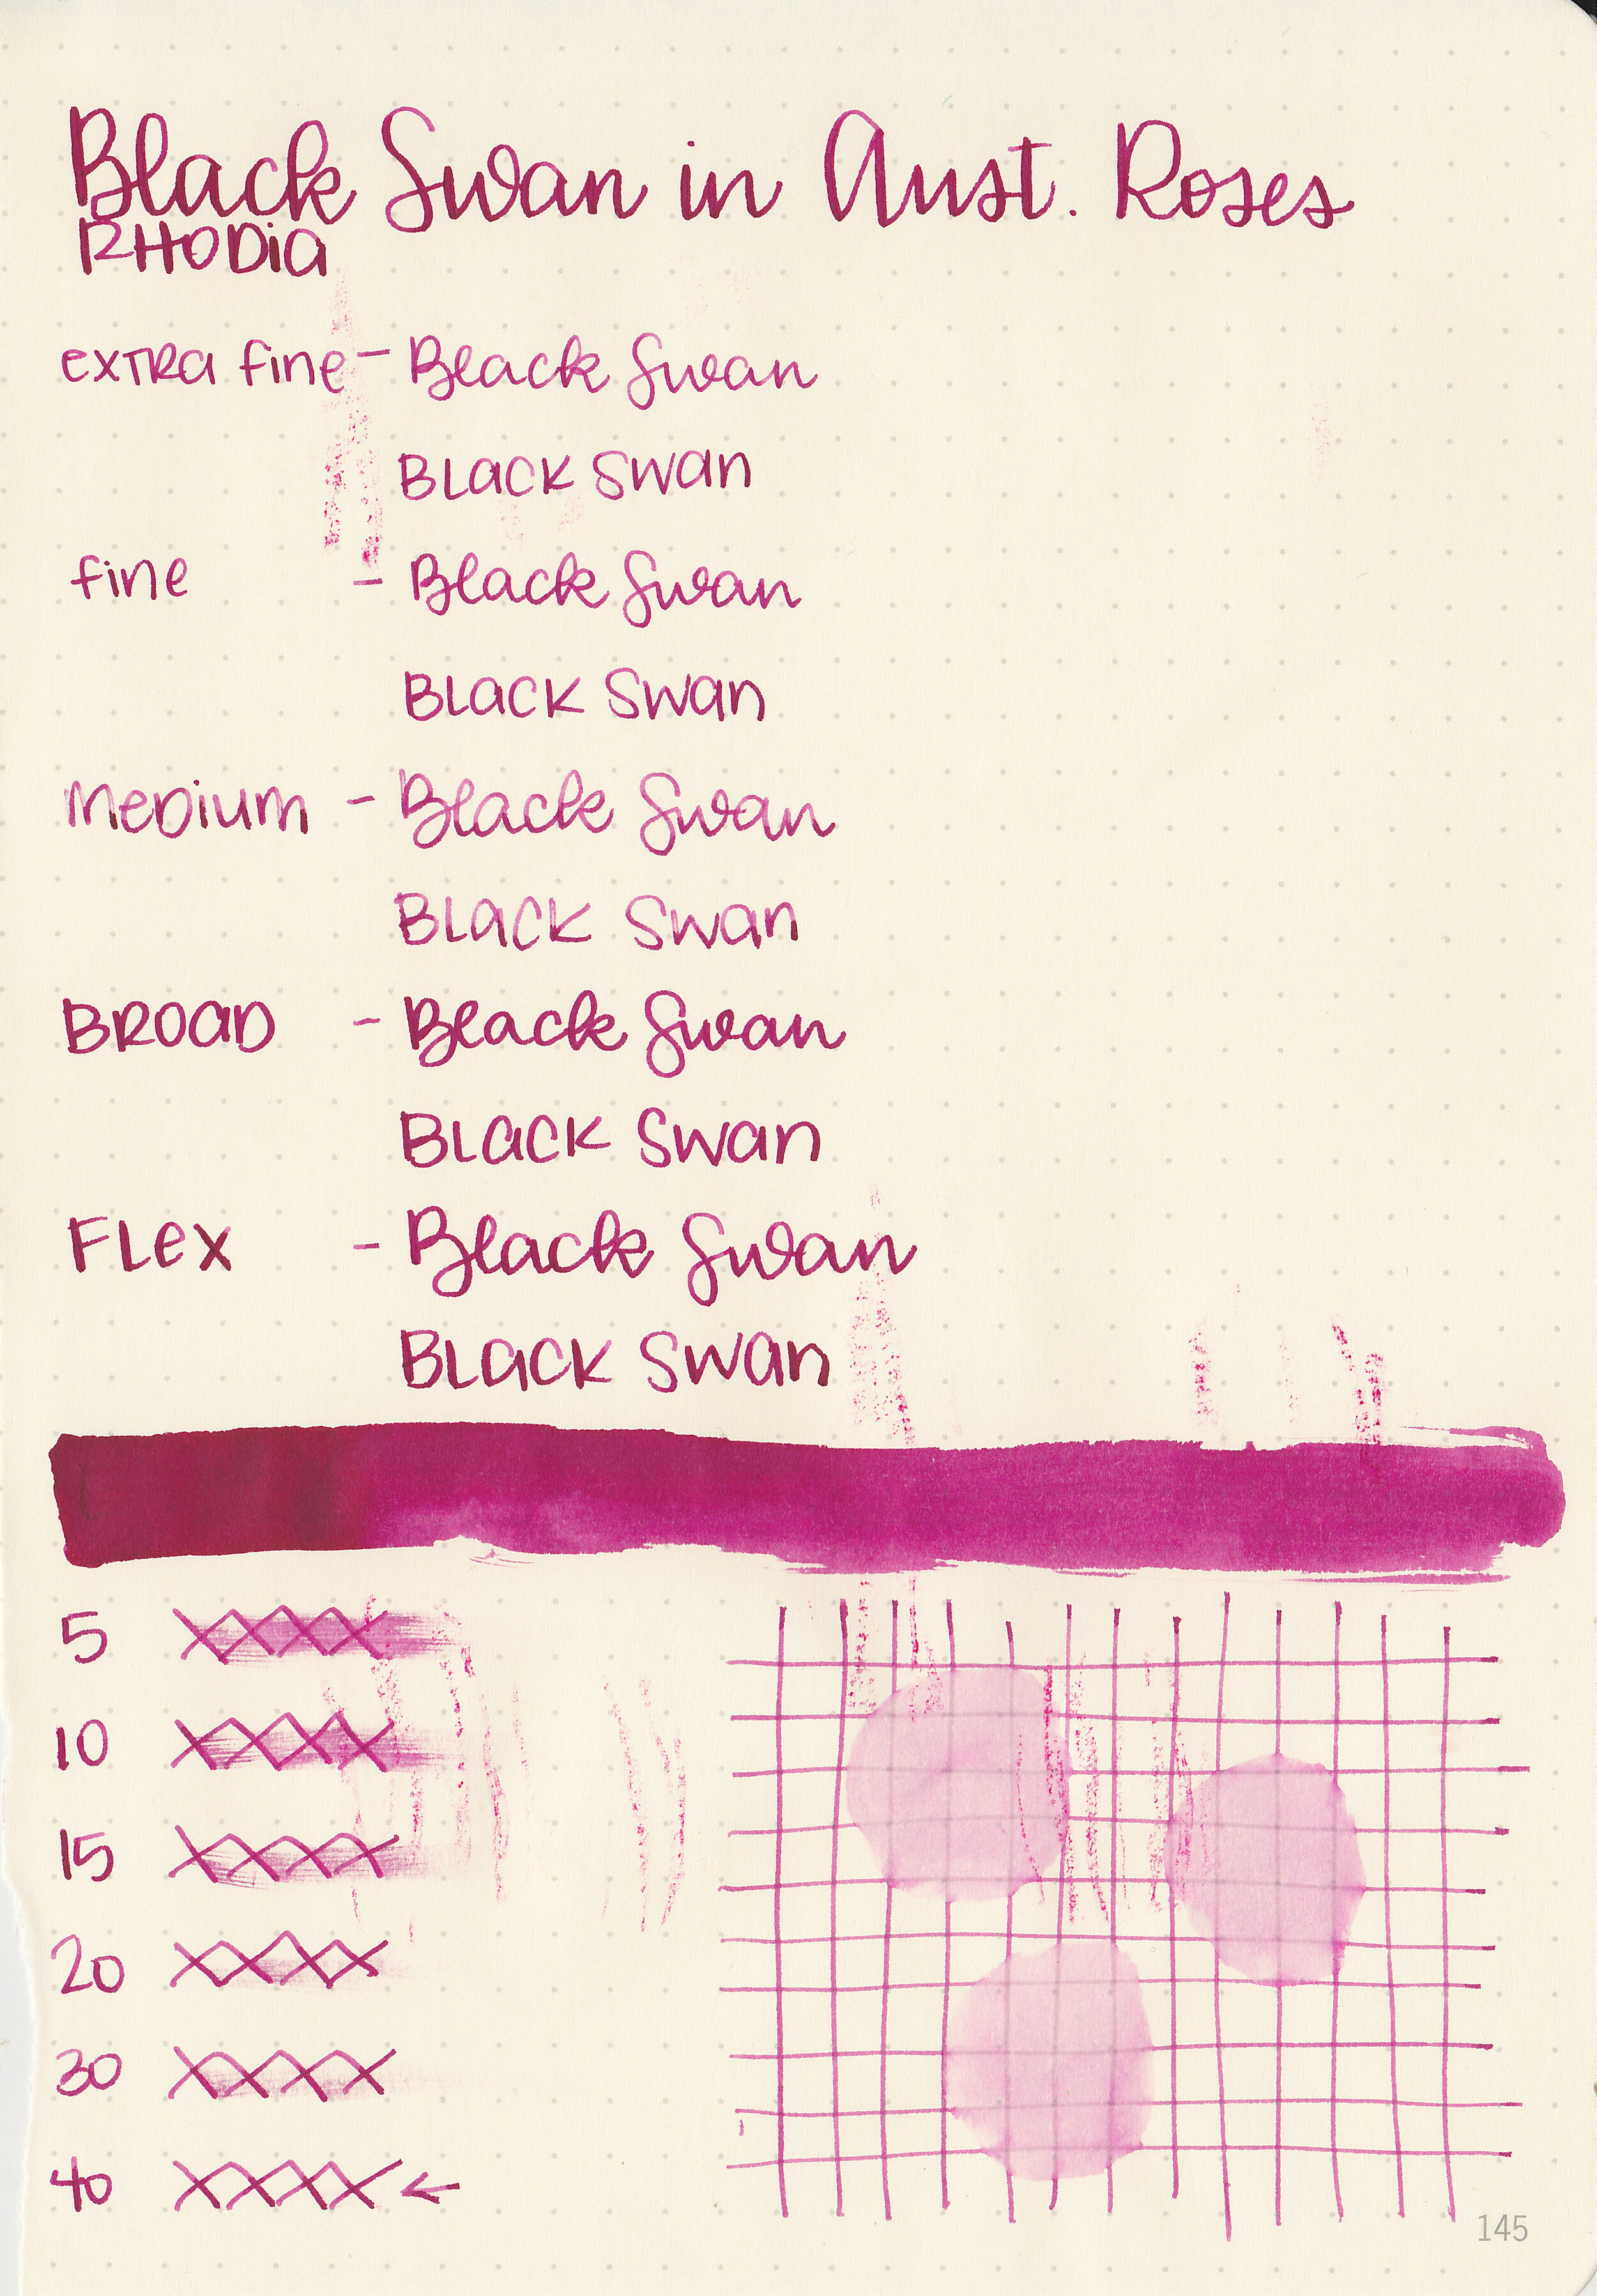 Black Swan in Aust. Roses
RHODia
exTRa fine - Black Swan
BLacK Swan
fine - Black Swan
BLacK Swan
MeDium - Black Swan
BLacK Swan
BROaD - Black Swan
BLacK Swan
FLex - Black Swan
BLacK Swan
5 XXXX
10 XXXX
15 XXXX
20 XXXX
30 XXXX
40 XXXX ←
145